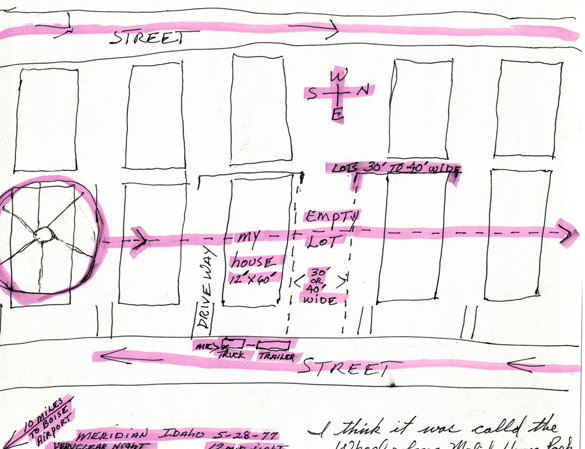 STREET
W
S N
E
LOTS 30' TO 40' WIDE
EMPTY
LOT
MY
HOUSE
12' X 60'
DRIVEWAY
30'
OR
40'
WIDE
ME>
TRUCK TRAILER
STREET
10 MILES
TO BOISE
AIRPORT
MERIDIAN IDAHO 5-28-77
VERY CLEAR NIGHT
I think it was called the
Mobile Home Park